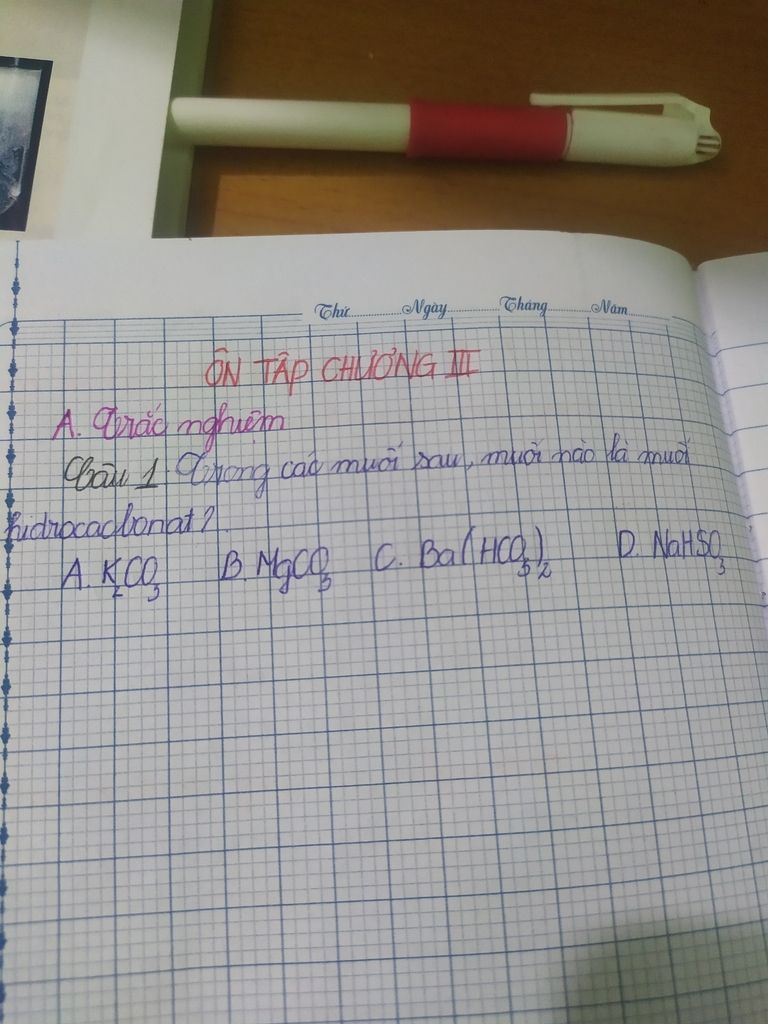 Thứ Ngày Tháng Năm
ÔN TẬP CHƯƠNG III
A. Trắc nghiệm
Câu 1 Trong các muối sau, muối nào là muối
hidrocacbonat?
A. K₂CO₃ B. MgCO₃ C. Ba(HCO₃)₂ D. NaHSO₃